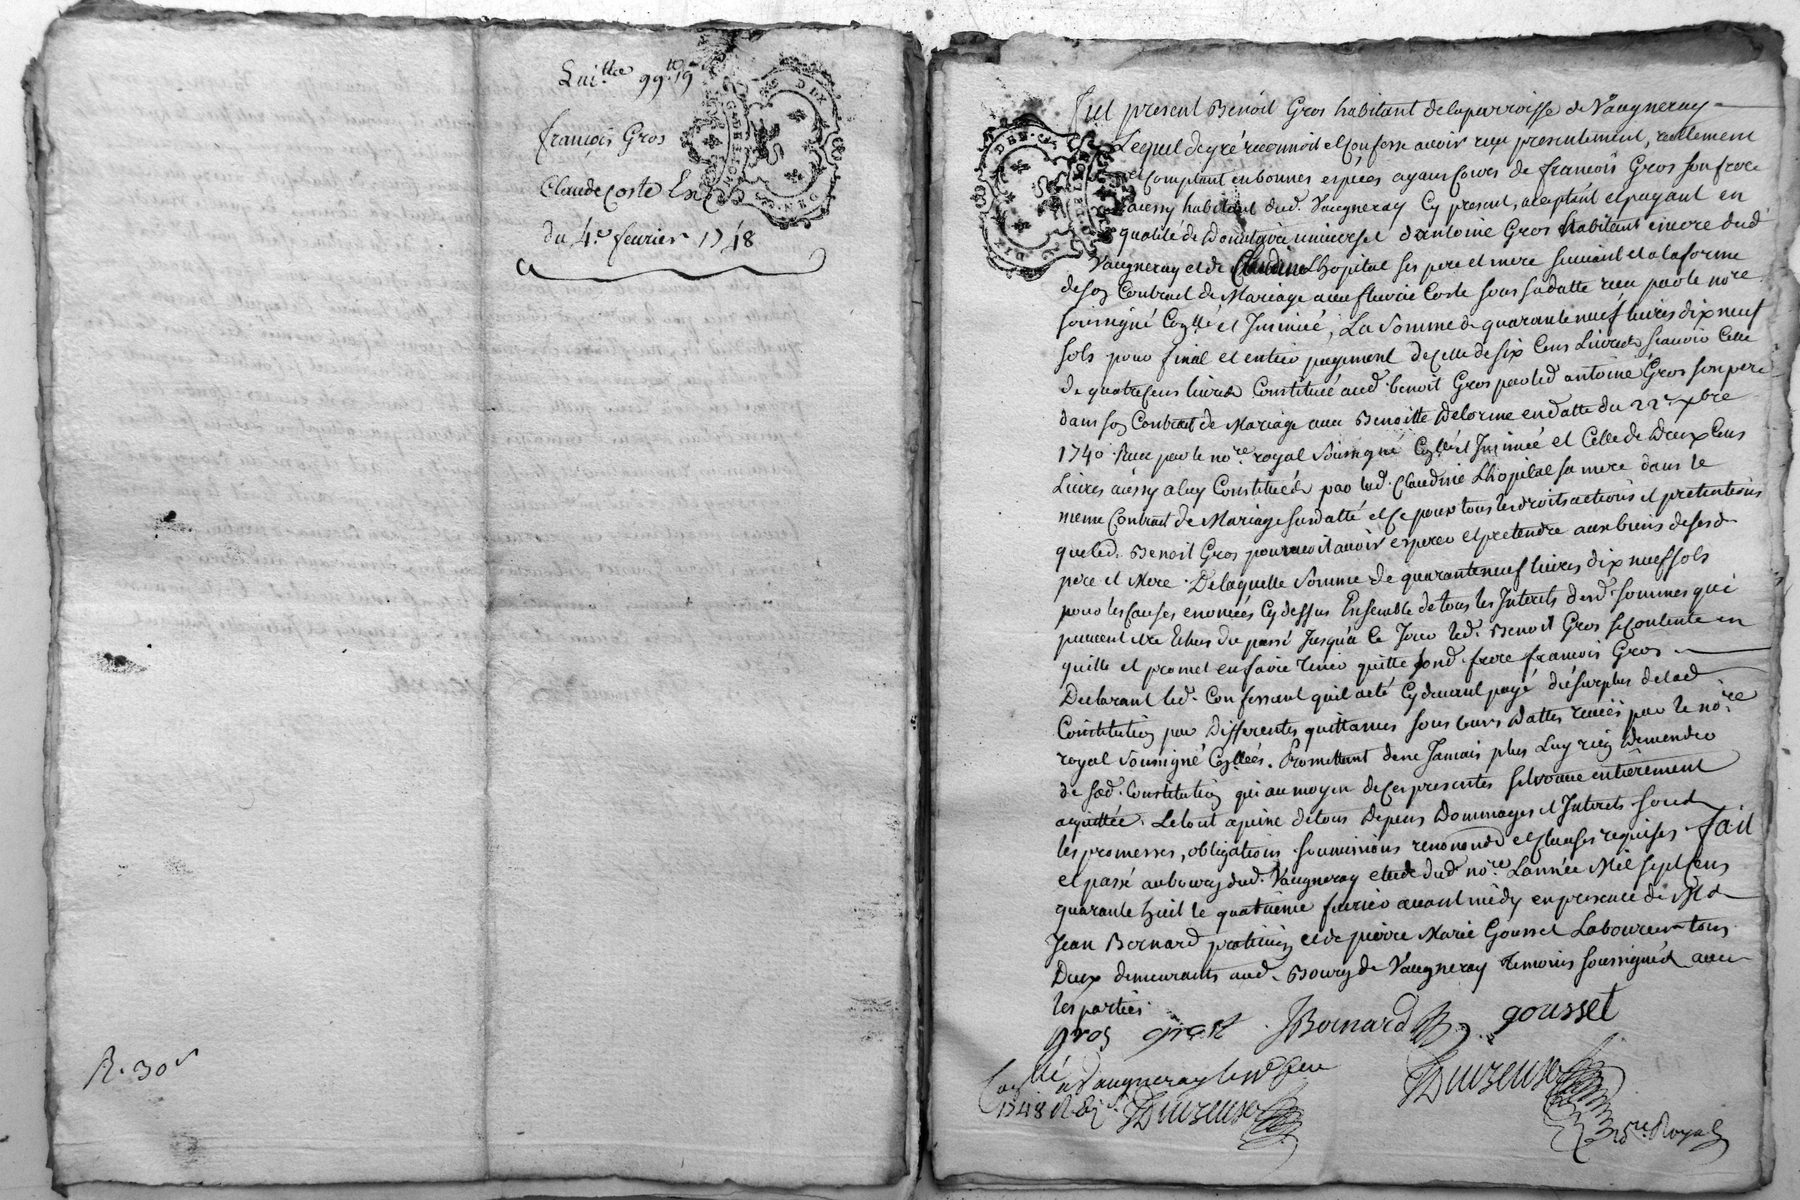 Quittce 99tt 19
françois Gros
Claude Coste
du 4e. fevrier 1748
R. 30s
Fut present Benoit Gros habitant de la parroisse de Vaugneray
Lequel de gré reconnoit et confesse avoir reçu presentement, reellement
et comptant en bonnes especes ayant cours de francois Gros son frere
aussy habitant dud. Vaugneray Cy present, aceptant et payant en
qualité de Donataire universel dantoine Gros habitant encore dud
Vaugneray et de Claudine Lhopital ses pere et mere suivant et a la forme
de son Contract de Mariage avec fleurie Coste sous sa datte reçu par le nore
soussigné Conllé et Insinué, La Somme de quarante neuf livres dix neuf
sols pour final et entier payement de celle de six Cens Livres scavoir Celle
de quatre cens livres Constituée aud. benoit Gros par led antoine Gros son pere
dans son Contract de Mariage avec Benoitte Delorme en datte du 22e xbre
1740 Recu par le nore royal soussigné Conllé et Insinué et Celle de Deux Cens
Livres aussy a luy Constituée par lad. Claudine Lhopital sa mere dans le
meme Contract de Mariage susdatté et ce pour tous les droits actions et pretentions
que led. Benoit Gros pourroit avoir esperer et pretendre aux biens de sesd
pere et Mere. De laquelle Somme de quarante neuf livres dix neuf sols
pour les causes enoncées Cy dessus Ensemble de tous les Interets desd. sommes qui
peuvent etre Echus du passé Jusqua ce Jour led. Benoit Gros se contente en
quitte et promet en faire tenir quitte sond. frere francois Gros
Declarant led. Confessant quil a eté Cy devant payé du surplus de lad
Constitution par differentes quittances sous leurs dattes recües par le nore
royal soussigné Conllées. Promettant de ne Jamais plus Luy rien demender
de sad. Constitution qui au moyen de ces presentes se trouve entierement
aquittée. Le tout a peine de tous Depens Dommages et Interets sous
les promesses, obligations soumissions renonons et clauses requises fait
et passé au bourg dud. Vaugneray etude dud nore. L'année Mil sept cens
quarante huit le quatrieme fevrier avant midy en presence de Me
Jean Bernard praticien et de pierre Marie Gousset Laboureur tous
Deux demeurants aud. Bourg de Vaugneray temoins soussignés avec
les parties.
gros gros JBernard gousset
Conllé a Vaugneray le
1748 R.
nre. Royal